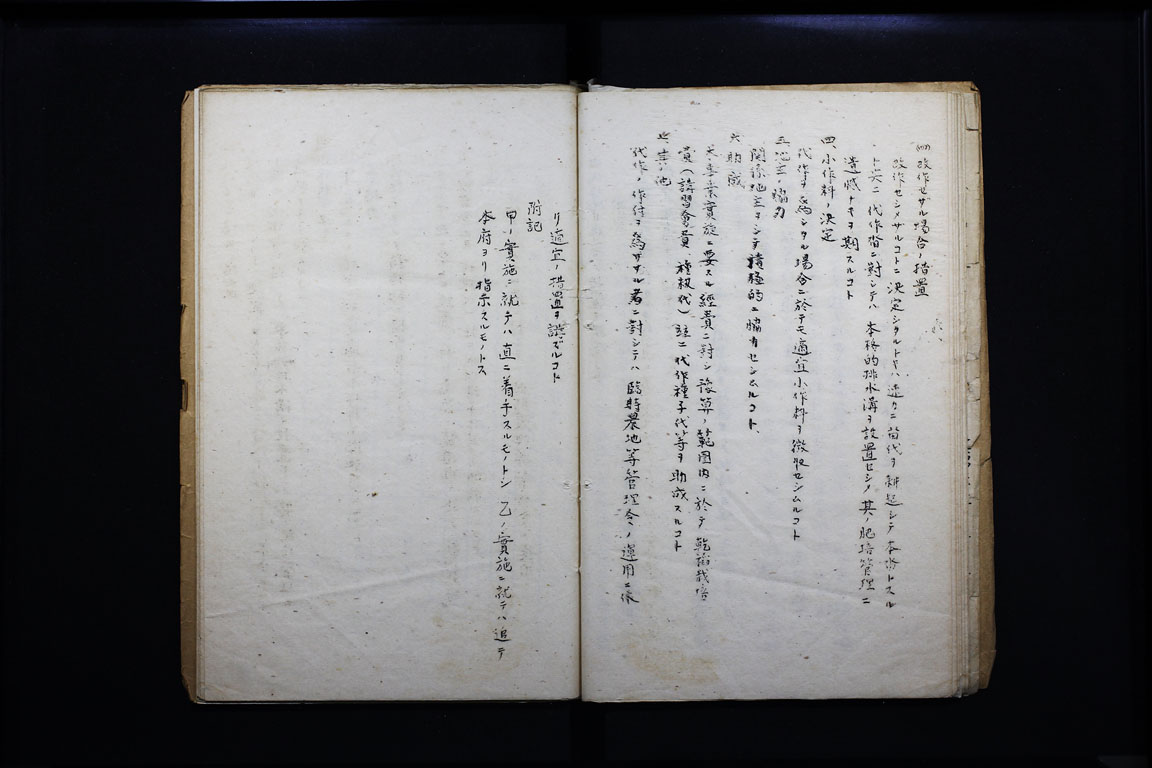 (四)改作セザル場合ノ措置
改作セシメサルコトニ決定シタルトキハ速カニ苗代ヲ耕起シテ本畓トスル
ト共ニ代作畓ニ対シテハ本格的排水溝ヲ設置セシメ其ノ肥培管理ニ
遺憾ナキヲ期スルコト
四、小作料ノ決定
代作ヲ為シタル場合ニ於テモ適宜小作料ヲ徴収セシムルコト
五、地主ノ協力
関係地主ヲシテ積極的ニ協力セシムルコト、
六、助成
本事業實施ニ要スル経費ニ対シ豫算ノ範囲内ニ於テ乾稲栽培
費(講習会費、種籾代)並ニ代作種子代等ヲ助成スルコト
七、其ノ他
代作ノ作付ヲ為サザル者ニ対シテハ臨時農地等管理令ノ運用ニ依
リ適宜ノ措置ヲ講ズルコト
附記
甲ノ實施ニ就テハ直ニ着手スルモノトシ乙ノ實施ニ就テハ追テ
本府ヨリ指示スルモノトス